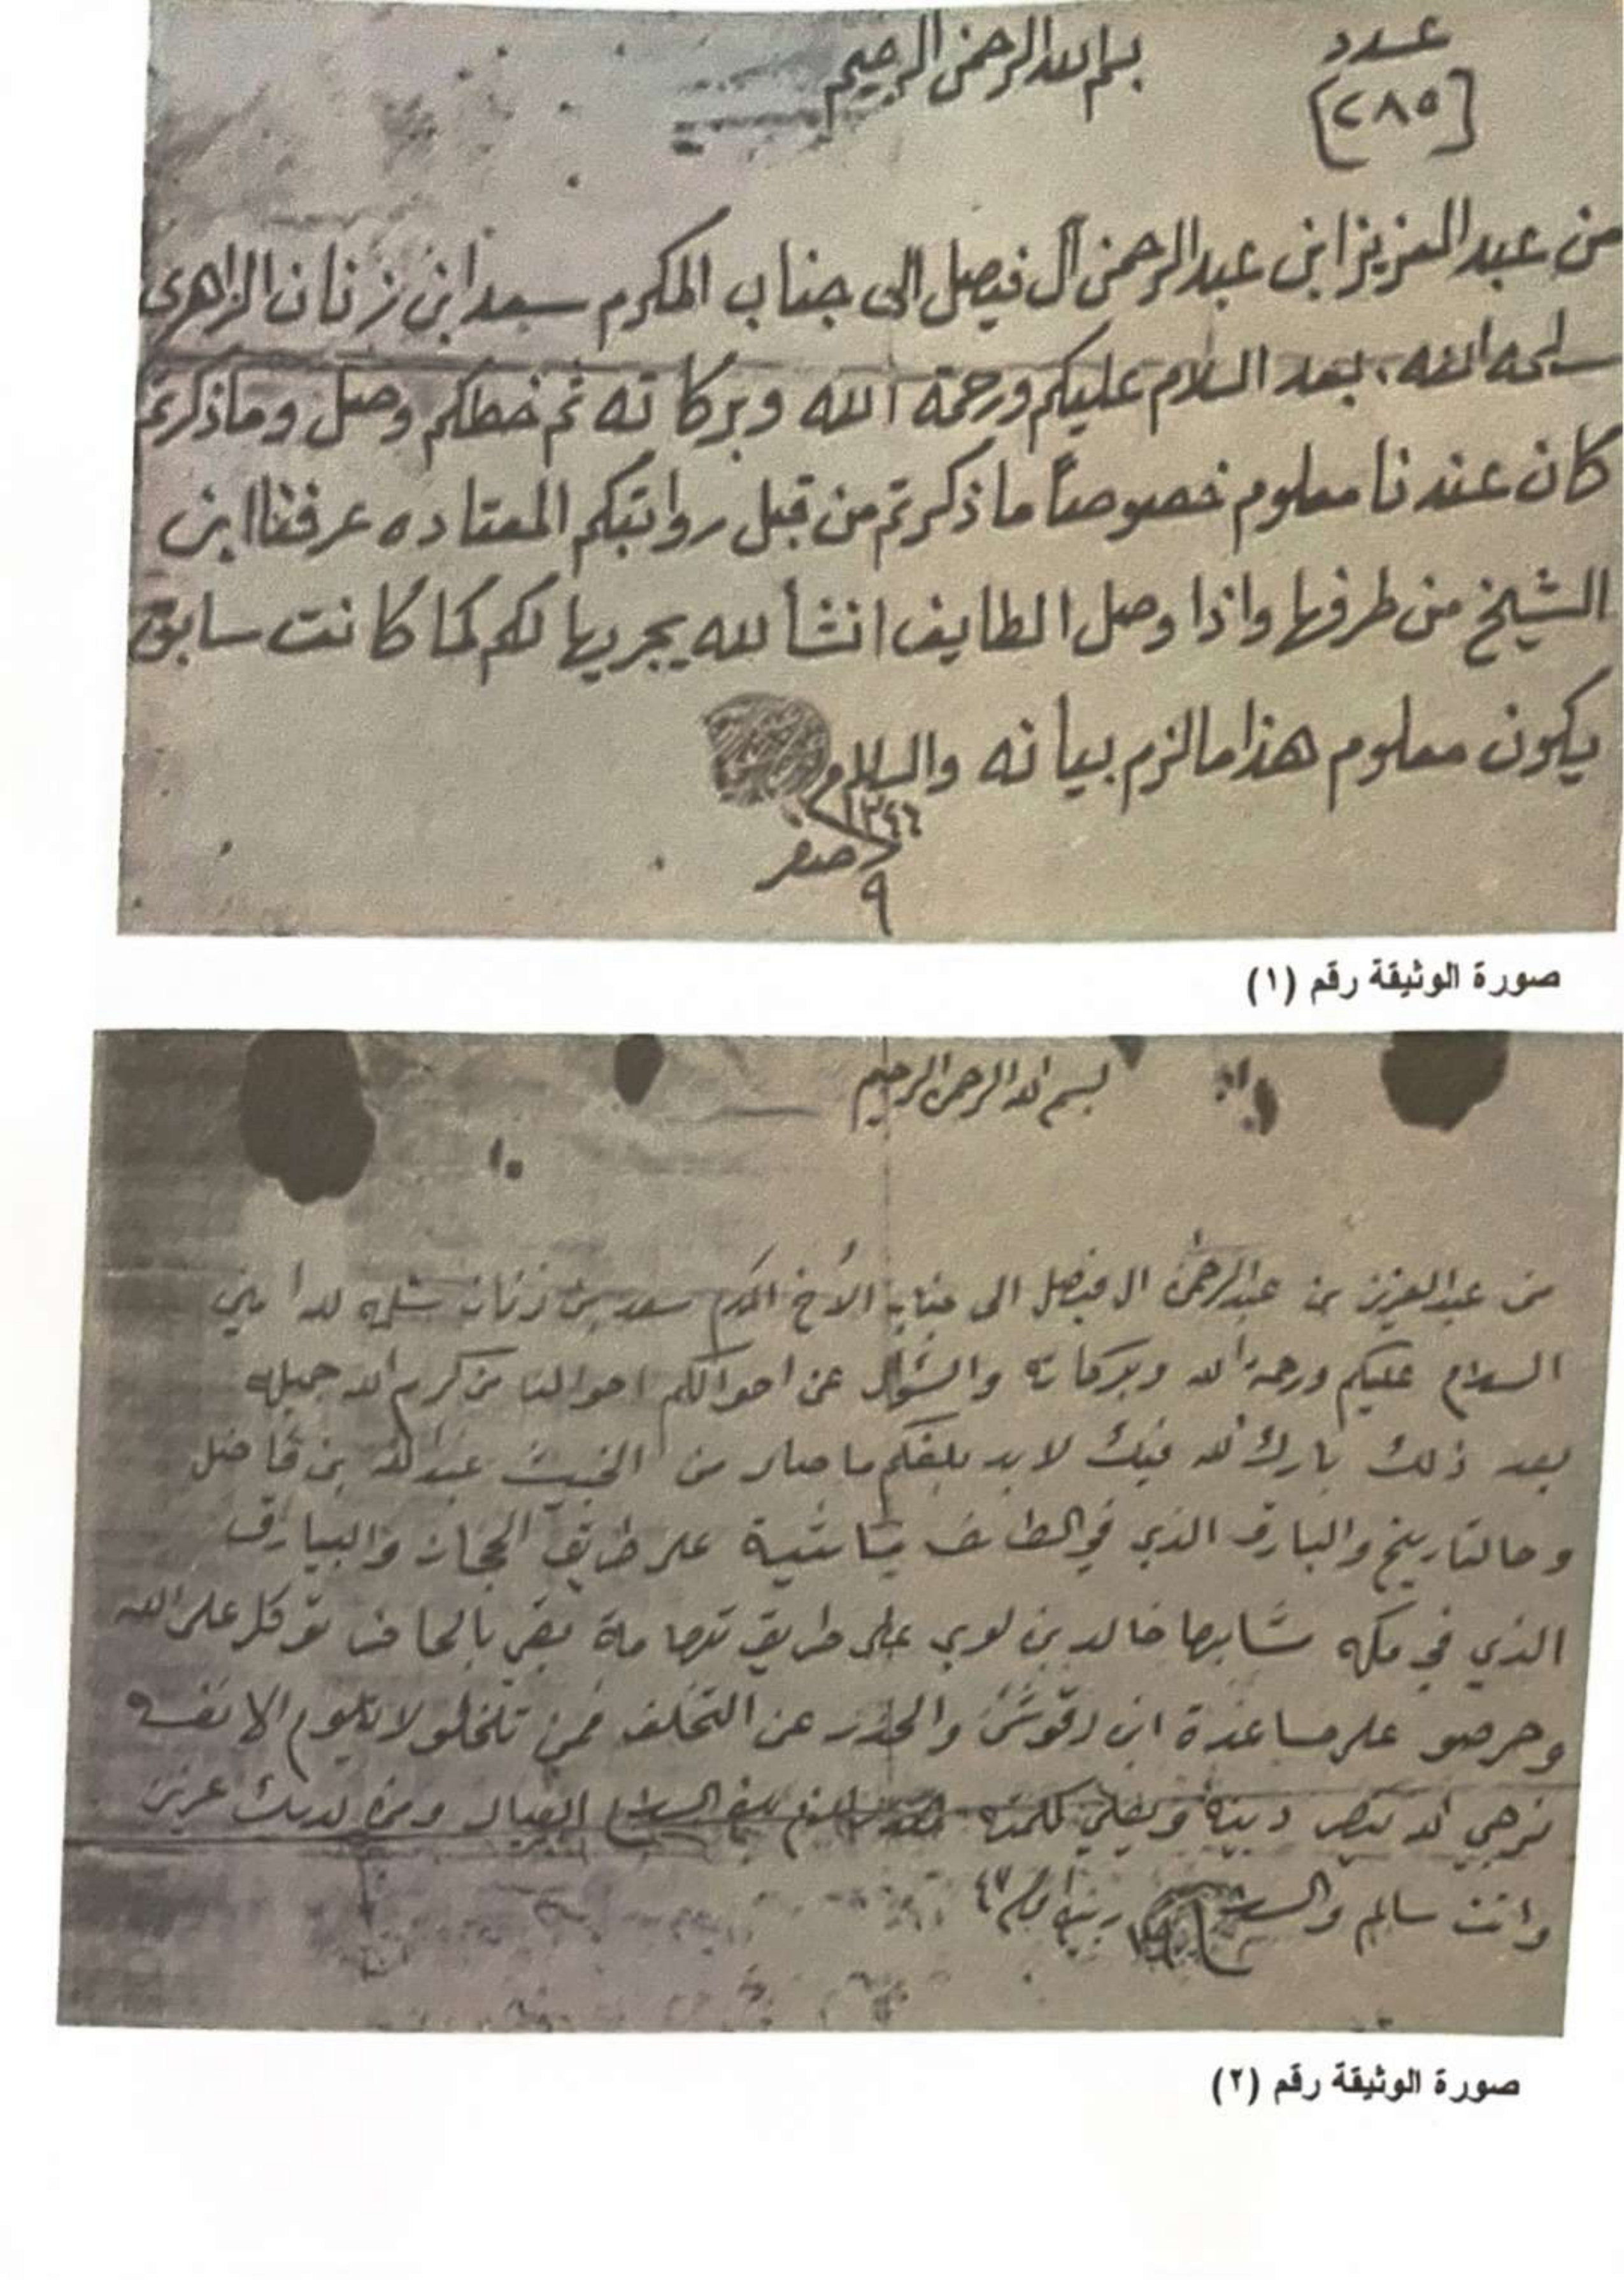 عدد
بسم الله الرحمن الرحيم
[٢٨٥]
من عبد العزيز ابن عبد الرحمن آل فيصل الى جناب المكرم سعد ابن زنان الزاهرى
سلمه الله، بعد السلام عليكم ورحمة الله وبركاته ثم خطكم وصل وماذكرتم
كان عندنا معلوم خصوصاً ما ذكرتم من قبل رواتبكم المعتاده عرفنا ابن
الشيخ من طرفها واذا وصل الطايف انشألله يجريها لكم كما كانت سابق
يكون معلوم هذا مالزم بيانه والسلام
١٣٤٦
صفر
٩
صورة الوثيقة رقم (١)
بسم الله الرحمن الرحيم
من عبدالعزيز بن عبدالرحمن ال فيصل الى جناب الأخ المكرم سعد بن زنان سلمه الله
السلام عليكم ورحمة الله وبركاته والسؤال عن احوالكم احوالنا من كرم الله جميله
بعد ذلك بارك الله فيك لابد بلغكم ما صار من الخبيث عبدالله بن فاضل
والبيارق الذي في الطايف على طريق الحجاز والبيارق
الذي في مكه خالد بن لوي على طريق تهامة توكل على الله
وحرصو على مساعدة ابن والحذر عن التخلف فمن تلخلف لا يلوم الا نفسه
نرجي الله ينصر دينه ويعلي كلمته العيال ومن لديك عزيز
وانت سالم والسلام
صورة الوثيقة رقم (٢)